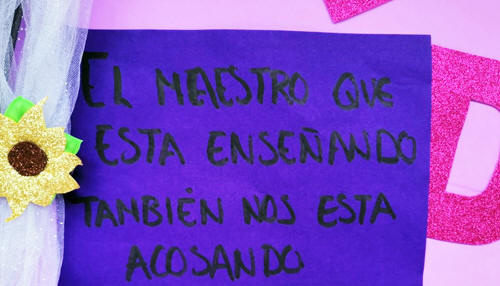 EL MAESTRO QUE
ESTA ENSEÑANDO
TAMBIÉN NOS ESTA
ACOSANDO